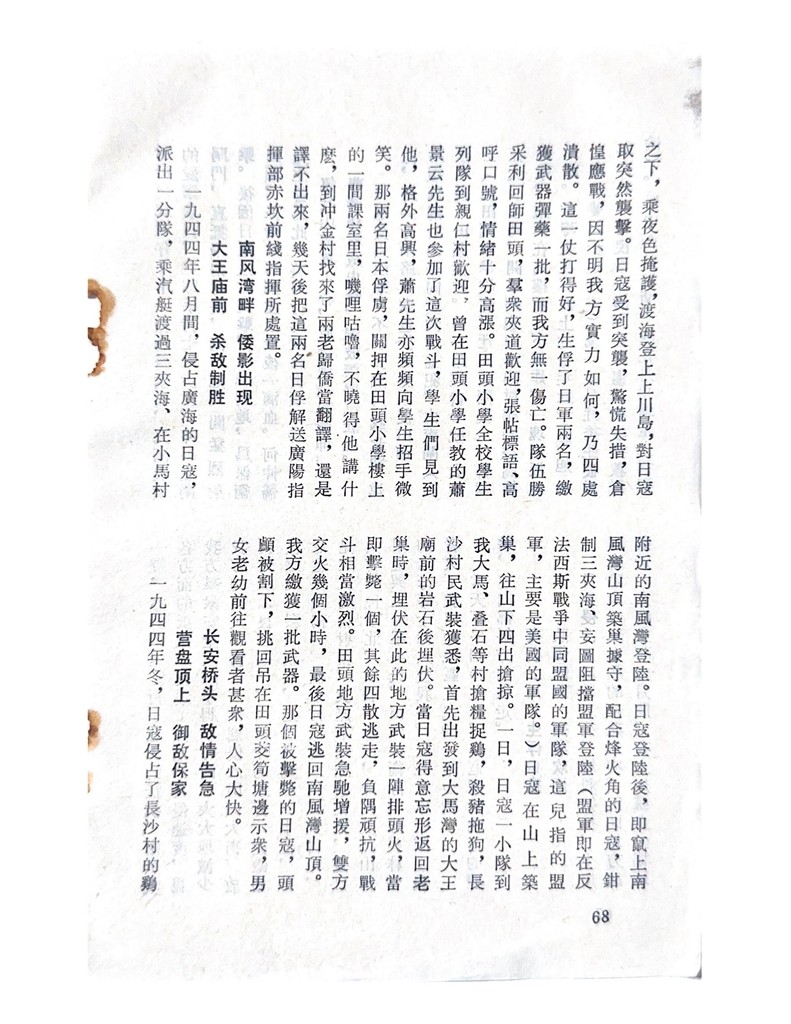 之下，乘夜色掩護，渡海登上上川島，對日寇
取突然襲擊。日寇受到突襲，驚慌失措，倉
惶應戰，因不明我方實力如何，乃四處
潰散。這一仗打得好，生俘了日軍兩名，繳
獲武器彈藥一批，而我方無一傷亡。隊伍勝
采利回師田頭，羣衆夾道歡迎，張帖標語、高
呼口號，情緒十分高漲。田頭小學全校學生
列隊到親仁村歡迎。曾在田頭小學任教的蕭
景云先生也參加了這次戰斗，學生們見到
他，格外高興，蕭先生亦頻頻向學生招手微
笑。那兩名日本俘虜，關押在田頭小學樓上
的一間課室里，嘰哩咕嚕，不曉得他講什
麽，到冲金村找來了兩老歸僑當翻譯，還是
譯不出來，幾天後把這兩名日俘解送廣陽指
揮部赤坎前綫指揮所處置。
南风湾畔　倭影出现
大王庙前　杀敌制胜
一九四四年八月間，侵占廣海的日寇，
派出一分隊，乘汽艇渡過三夾海、在小馬村
附近的南風灣登陸。日寇登陸後，即竄上南
風灣山頂築巢據守，配合烽火角的日寇，鉗
制三夾海、妄圖阻擋盟軍登陸（盟軍即在反
法西斯戰爭中同盟國的軍隊，這兒指的盟
軍，主要是美國的軍隊。）日寇在山上築
巢，往山下四出搶掠。一日，日寇一小隊到
我大馬、叠石等村搶糧捉鷄，殺豬拖狗，長
沙村民武裝獲悉，首先出發到大馬灣的大王
廟前的岩石後埋伏。當日寇得意忘形返回老
巢時，埋伏在此的地方武裝一陣排頭火，當
即擊斃一個，其餘四散逃走，負隅頑抗，戰
斗相當激烈。田頭地方武裝急馳增援，雙方
交火幾個小時，最後日寇逃回南風灣山頂。
我方繳獲一批武器。那個被擊斃的日寇，頭
顱被割下，挑回吊在田頭茭筍塘邊示衆，男
女老幼前往觀看者甚衆，人心大快。
长安桥头　敌情告急
营盘顶上　御敌保家
一九四四年冬，日寇侵占了長沙村的鷄
68